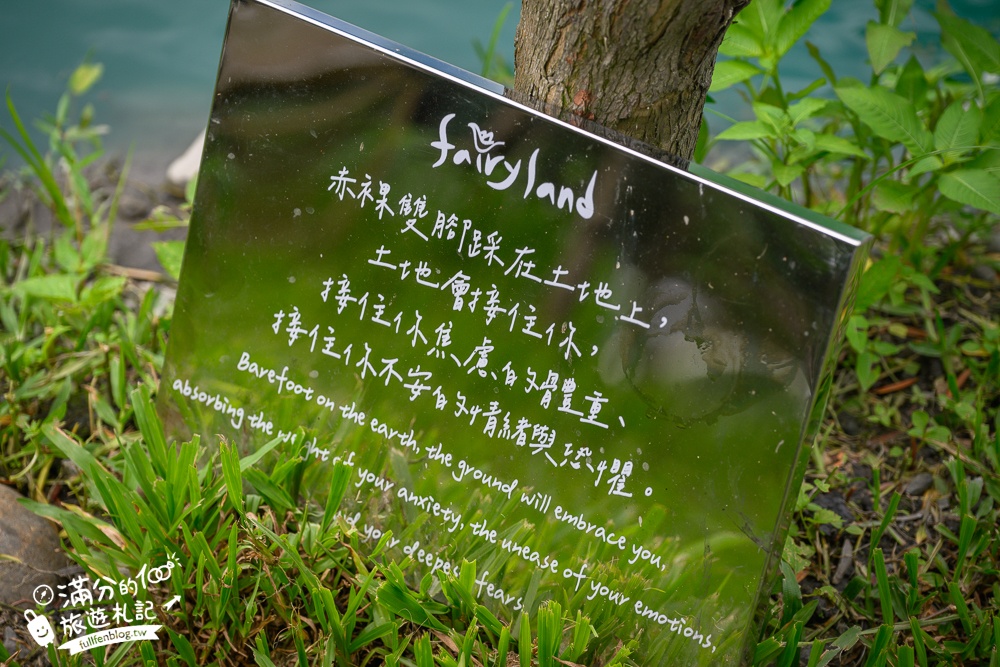 fairyland
赤裸雙腳踩在土地上，
土地會接住你，
接住你焦慮的體重、
接住你不安的情緒與恐懼。
Barefoot on the earth, the ground will embrace you,
absorbing the weight of your anxiety, the unease of your emotions,
your deepest fears.
滿分的
旅遊札記
fullfenblog.tw